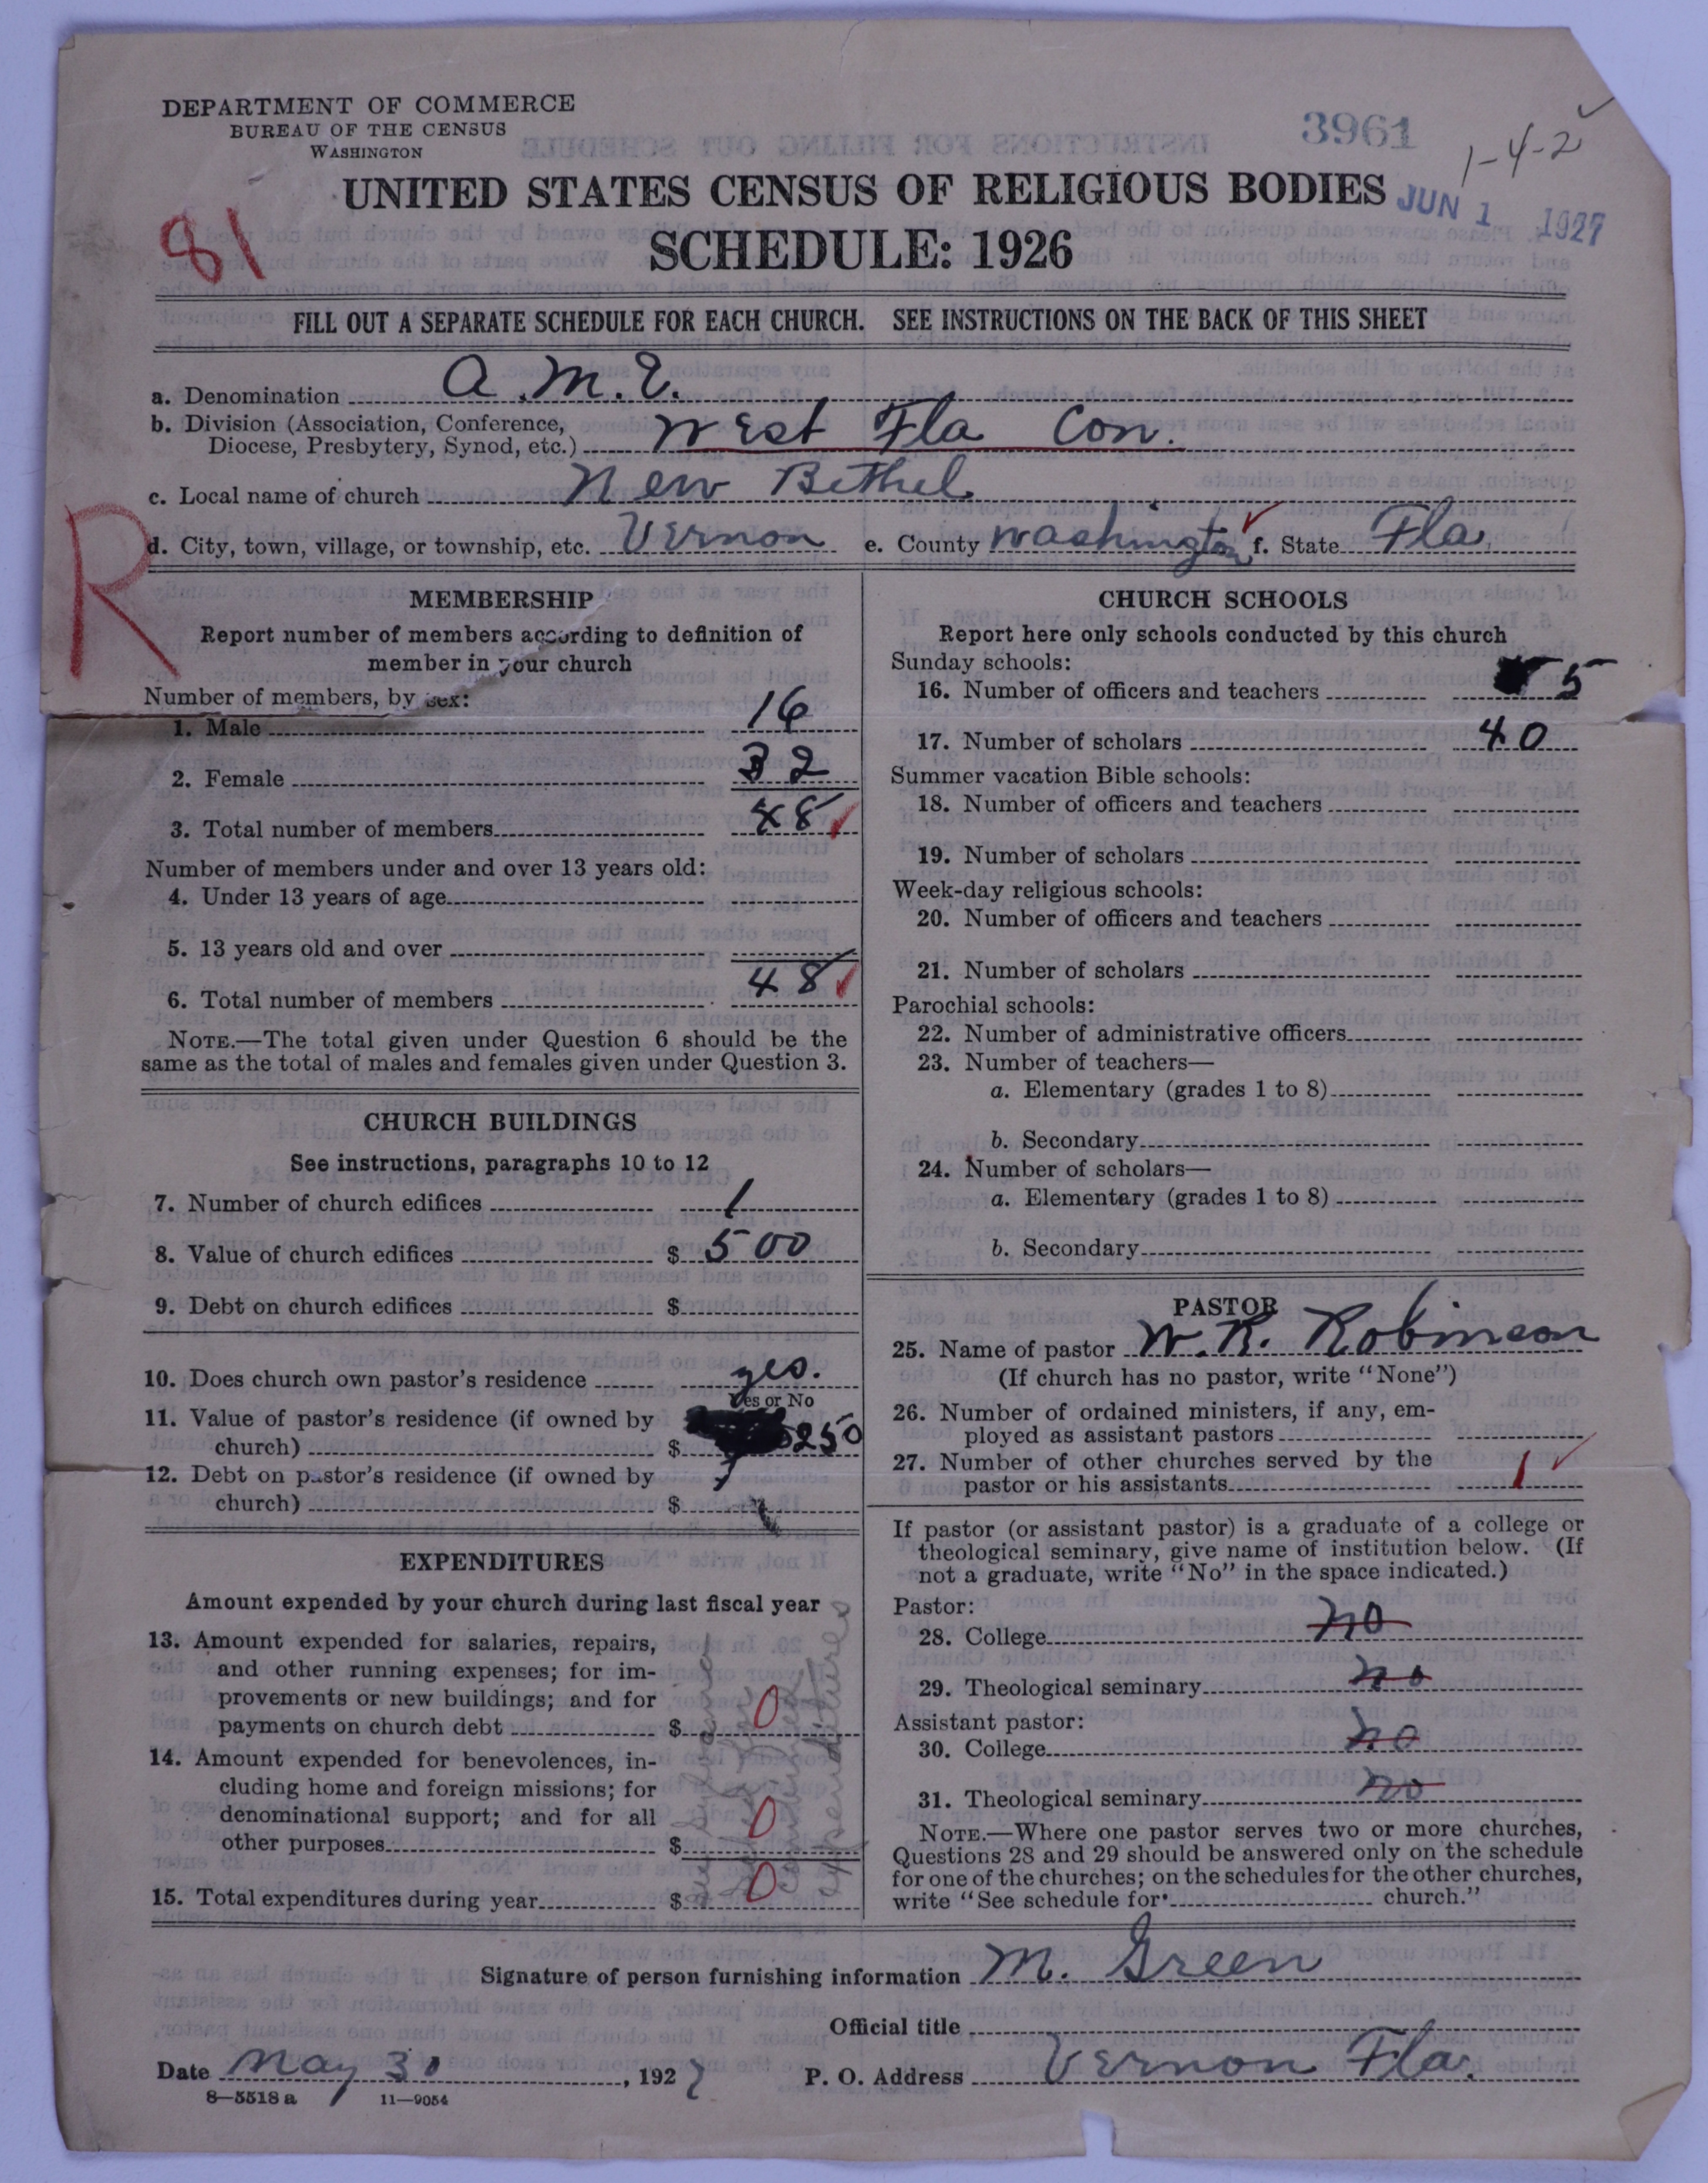 DEPARTMENT OF COMMERCE
BUREAU OF THE CENSUS
WASHINGTON
3961
1-4-2
UNITED STATES CENSUS OF RELIGIOUS BODIES
JUN 1 1927
81
SCHEDULE: 1926
FILL OUT A SEPARATE SCHEDULE FOR EACH CHURCH. SEE INSTRUCTIONS ON THE BACK OF THIS SHEET
a. Denomination A.M.E.
b. Division (Association, Conference,
Diocese, Presbytery, Synod, etc.) West Fla Con.
c. Local name of church New Bethel
R
d. City, town, village, or township, etc. Vernon e. County Washington f. State Fla.
MEMBERSHIP
Report number of members according to definition of
member in your church
Number of members, by sex:
1. Male 16
2. Female 32
3. Total number of members 48
Number of members under and over 13 years old:
4. Under 13 years of age
5. 13 years old and over
6. Total number of members 48
NOTE.—The total given under Question 6 should be the
same as the total of males and females given under Question 3.
CHURCH BUILDINGS
See instructions, paragraphs 10 to 12
7. Number of church edifices 1
8. Value of church edifices $ 500
9. Debt on church edifices $
10. Does church own pastor's residence yes.
Yes or No
11. Value of pastor's residence (if owned by
church) $ 250
12. Debt on pastor's residence (if owned by
church) $
EXPENDITURES
Amount expended by your church during last fiscal year
13. Amount expended for salaries, repairs,
and other running expenses; for im-
provements or new buildings; and for
payments on church debt $ 0
14. Amount expended for benevolences, in-
cluding home and foreign missions; for
denominational support; and for all
other purposes $ 0
15. Total expenditures during year $ 0
expenditures
CHURCH SCHOOLS
Report here only schools conducted by this church
Sunday schools:
16. Number of officers and teachers 5
17. Number of scholars 40
Summer vacation Bible schools:
18. Number of officers and teachers
19. Number of scholars
Week-day religious schools:
20. Number of officers and teachers
21. Number of scholars
Parochial schools:
22. Number of administrative officers
23. Number of teachers—
a. Elementary (grades 1 to 8)
b. Secondary
24. Number of scholars—
a. Elementary (grades 1 to 8)
b. Secondary
PASTOR
25. Name of pastor W. R. Robinson
(If church has no pastor, write "None")
26. Number of ordained ministers, if any, em-
ployed as assistant pastors
27. Number of other churches served by the
pastor or his assistants 1
If pastor (or assistant pastor) is a graduate of a college or
theological seminary, give name of institution below. (If
not a graduate, write "No" in the space indicated.)
Pastor:
28. College no
29. Theological seminary no
Assistant pastor:
30. College no
31. Theological seminary no
NOTE.—Where one pastor serves two or more churches,
Questions 28 and 29 should be answered only on the schedule
for one of the churches; on the schedules for the other churches,
write "See schedule for church."
Signature of person furnishing information M. Green
Official title
Date May 30, 1927 P. O. Address Vernon Fla.
8—5518 a 11—9054